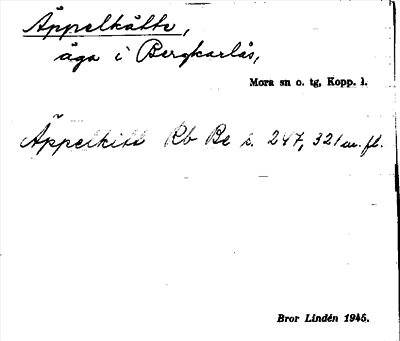 Äppelkåtte,
äga i Bergkarlås,
Mora sn o. tg, Kopp. l.
Äppelkitt Rb Be s. 247, 321 m. fl.
Bror Lindén 1945.